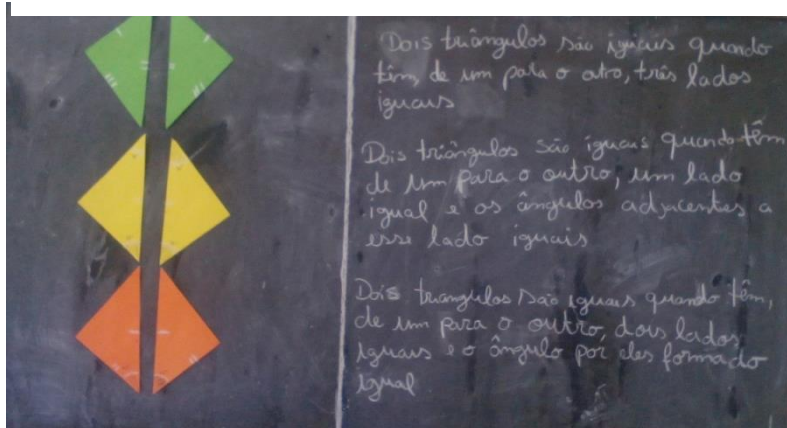 Dois triângulos são iguais quando
têm, de um para o otro, três lados
iguais
Dois triângulos são iguais quando têm
de um para o outro, um lado
igual e os ângulos adjacentes a
esse lado iguais
Dois triangulos são iguais quando têm,
de um para o outro, dois lados
iguais e o ângulo por eles formado
igual